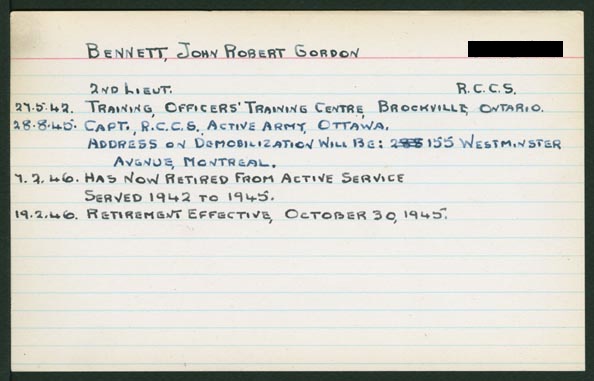 BENNETT, JOHN ROBERT GORDON
2ND LIEUT. R.C.C.S.
27.5.42. TRAINING, OFFICERS' TRAINING CENTRE, BROCKVILLE, ONTARIO.
28.8.45. CAPT., R.C.C.S. ACTIVE ARMY, OTTAWA.
ADDRESS ON DEMOBILIZATION WILL BE: 155 WESTMINSTER
AVENUE, MONTREAL.
7.2.46. HAS NOW RETIRED FROM ACTIVE SERVICE
SERVED 1942 TO 1945.
19.2.46. RETIREMENT EFFECTIVE, OCTOBER 30, 1945.